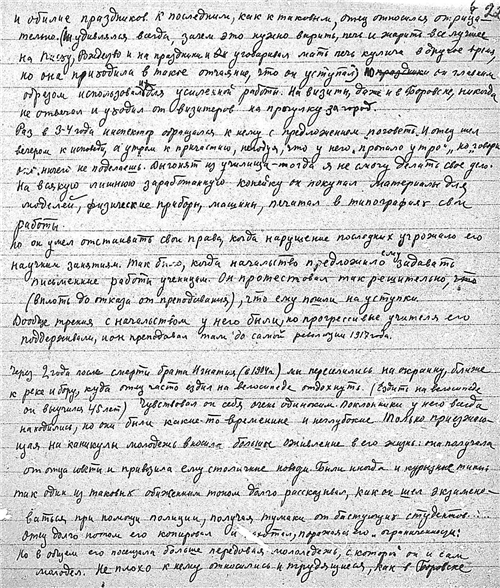 и обилие праздников. К последним, как к таковым, отец относился отрица-
тельно. (Удивлялся всегда, зачем это нужно варить, печь и жарить все лучшее
на Пасху, Рождество и на праздники. Уговаривал мать печь кулича в другое время,
но она приходила в такое отчаяние, что он уступал) праздники он главным
образом использовал для усиленной работы. На визиты, даже и в Боровске, никогда
не отвечал и уходил от визитеров на прогулку за город.
Раз в 3-4 года инспектор обращался к нему с предложением поговеть. И отец шел
вечером к исповеди, а утром к причастию, негодуя, что у него, "пропало утро", но говори
ничего не поделаешь. Выгонят из училища - тогда я не смогу делать свое дело.
На всякую лишнюю заработанную копейку он покупал материалы для
моделей, физические приборы, машины, печатал в типографиях свои
работы.
Но он умел отстаивать свои права, когда нарушение последних угрожало его
научным занятиям. Так было, когда начальство предложило ему задавать
письменные работы ученицам. Он протестовал так решительно,
(вплоть до отказа от преподавания), что ему пошли на уступки.
Вообще трения с начальством у него были, но прогрессивные учителя его
поддерживали, и он преподавал там до самой революции 1917 года.
Через 2 года после смерти брата Игнатия (в 1904г) мы переселились на окраину, ближе
к реке и бору, куда отец часто ездил на велосипеде отдохнуть. (Ездить на велосипеде
он выучился 45 лет) Чувствовал он себя очень одиноким. Поклонники у него всегда
находились, но они были какие-то временные и неглубокие. Только приезжаю-
щая на каникулы молодежь вносила большое оживление в его жизнь: она получала
от отца советы и привозила ему столичные новости. Были иногда и курьезные типы:
так один из таковых обиженным тоном долго рассказывал, как он шел экзамено-
ваться при помощи полиции, получая тумаки от бастующих студентов.
Отец долго потом его копировал и хохотал, поражаясь его "ограниченности"
Но в общем его посещала больше передовая молодежь, с которой он и сам
молодел. Не плохо к нему относились и трудящиеся, как в Боровске